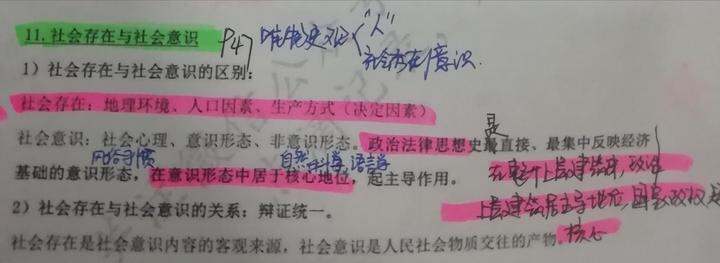 11. 社会存在与社会意识 P47 唯物史观 "人"
社会存在/意识.
1）社会存在与社会意识的区别：
社会存在：地理环境、人口因素、生产方式（决定因素）
社会意识：社会心理、意识形态、非意识形态。政治法律思想史最直接、最集中反映经济
是
风俗习惯 自然科学 语言学
基础的意识形态，在意识形态中居于核心地位，起主导作用。
在整个上层建筑中，政治
上层建筑居主导地位，国家政权是
核心
2）社会存在与社会意识的关系：辩证统一。
社会存在是社会意识内容的客观来源，社会意识是人民社会物质交往的产物。